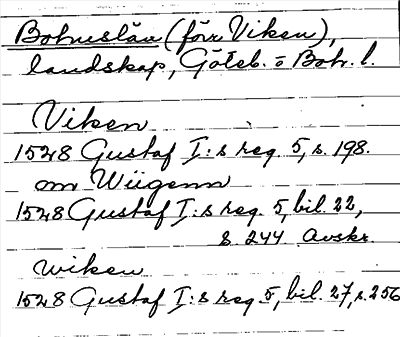 Bohuslän (förr Viken),
landskap, Göteb. o Boh. l.
Viken
1528 Gustaf I:s reg. 5, s. 198.
om Wiigenn
1528 Gustaf I:s reg. 5, bil. 22,
s. 244. Avskr.
wiken
1528 Gustaf I:s reg. 5, bil. 27, s. 256